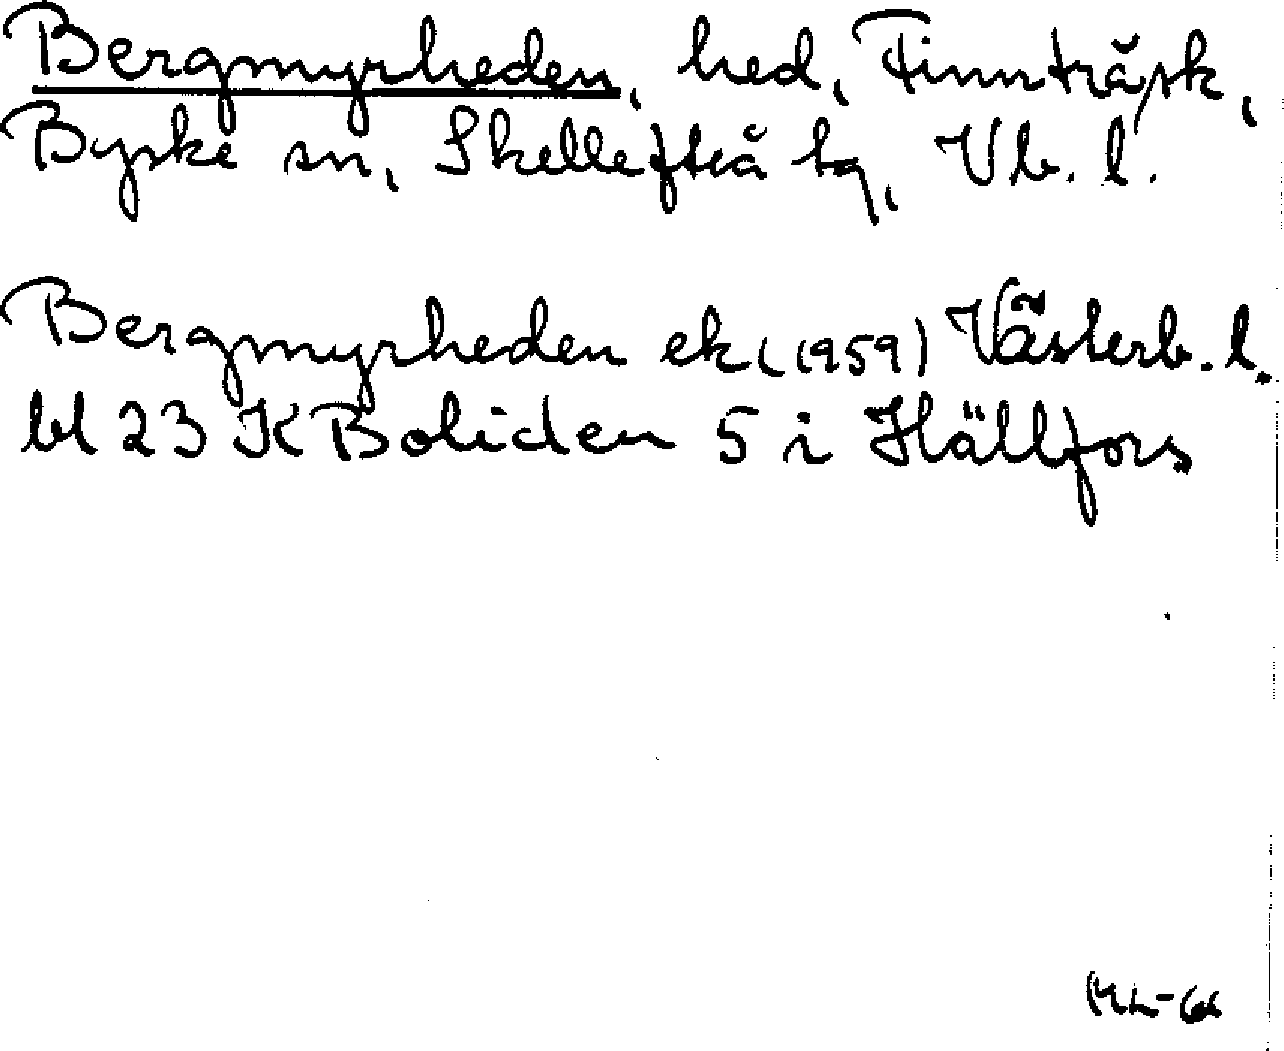 Bergmyrheden, hed, Finnträsk,
Byske sn, Skellefteå tg, Vb. l.
Bergmyrheden ek (1959) Västerb. l.
bl 23 K Boliden 5 i Hällfors